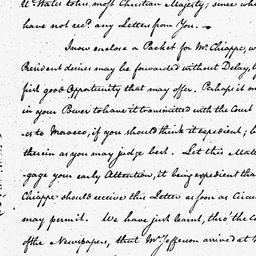 States to his most Christian Majesty; since wh
have not recd. any Letters from You. —
I now enclose a Packet for Mr. Chiappe, w
President desires may be forwarded without Delay, b
first good Opportunity that may offer. Perhaps it m
in your Power to have it transmitted with the Court
-es to Morocco, if you should think it expedient;
therein as you may judge best. Let this Matt
-gage your early Attention, it being expedient tha
Chiappe should receive this Letter as soon as Circu
may permit. We have just learnt, thro' the C
of the Newspapers, that Mr. Jefferson arrived at